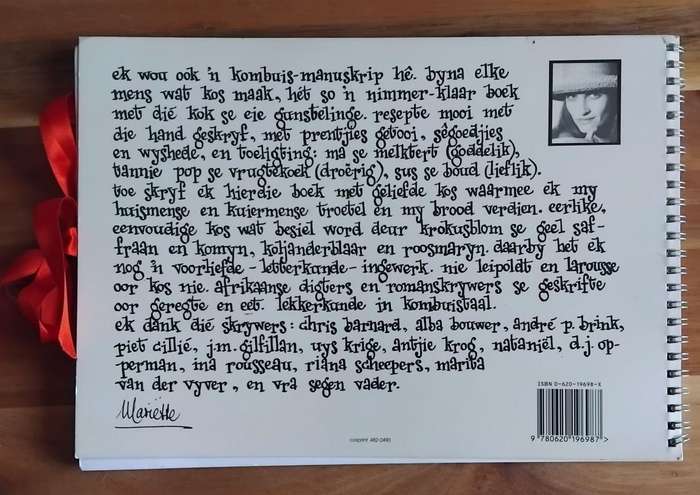 ek wou ook 'n kombuis-manuskrip hê. byna elke
mens wat kos maak, hét so 'n nimmer-klaar boek
met dié kok se eie gunstelinge. resepte mooi met
die hand geskryf, met prentjies getooi, sêgoedjies
en wyshede, en toeligting: ma se melktert (goddelik),
tannie pop se vrugtekoek (droërig), sus se boud (lieflik).
toe skryf ek hierdie boek met geliefde kos waarmee ek my
huismense en kuiermense troetel en my brood verdien. eerlike,
eenvoudige kos wat besiel word deur krokusblom se geel saf-
fraan en komyn, koljanderblaar en roosmaryn. daarby het ek
nog 'n voorliefde - letterkunde - ingewerk. nie leipoldt en larousse
oor kos nie. afrikaanse digters en romanskrywers se geskrifte
oor geregte en eet. lekkerkunde in kombuistaal.
ek dank dié skrywers: chris barnard, alba bouwer, andré p. brink,
piet cillié, j.m. gilfillan, uys krige, antjie krog, nataniël, d.j. op-
perman, ina rousseau, riana scheepers, marita
van der vyver, en vra segen vader.
Mariëtte
ISBN 0-620-19698-X
9 780620 196987 >